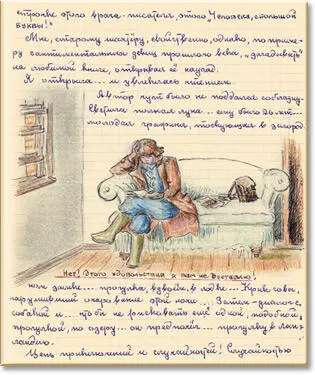 "строке этого врага-писателя, этого Человека, с большой
буквы!"
Мне, старому мастеру, свойственно, однако, по приме-
ру сантиментальных девиц прошлого века, "загадывать"
на любимой книге, открывая её наугад.
Я открыла... и увлеклась чтением.
Автор чуть было не поддался соблазну.
Светила полная луна... ему было 26 лет...
молодая графиня, тоскующая в загород
Нет! Этого удовольствия я вам не доставлю!
ном замке... прогулка, вдвоём, в лодке... Крик совы,
нарушивший очарование этой ночи... Затем - диалог с
собакой и... чтоб не рисковать ещё одной, подобной,
прогулкой, по озеру... он предпочёл... прогулку в Лап-
ландию.
Цепь приключений и случайностей! Случайностью